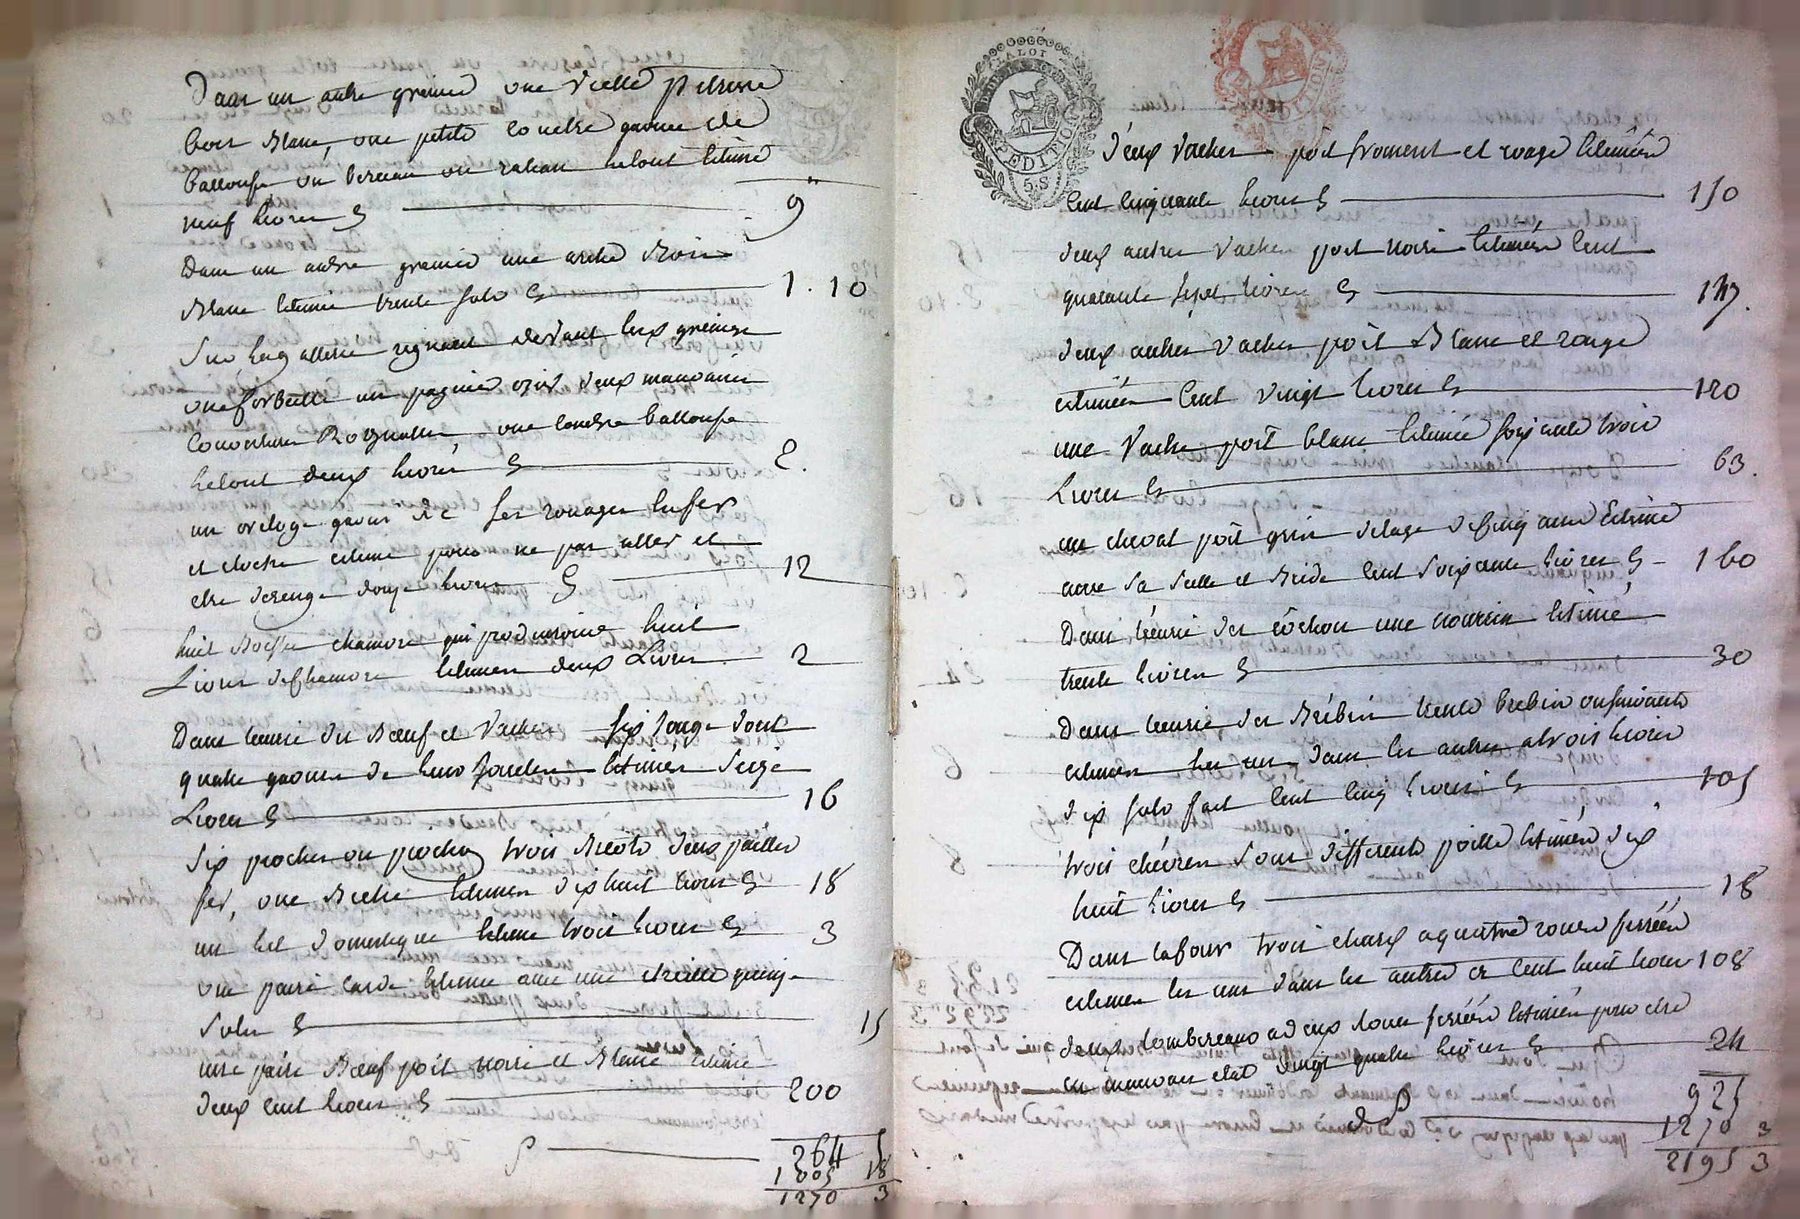 Dans un autre grenier une vielle pétriere
bois blanc, une petite couetre garnie de
balloufe un berceau un rateau letout estimé
neuf livres 9
Dans un autre grenier une arche bois
blanc estimée trente sols 1. 10
Sur la gallerie régnant devant les greniers
une corbeille un pagnier ozier deux mauvaises
couvertures une couetre balloufe
letout deux livres 2.
un orloge garni de ses rouages
et cloche estimé pour ne pas aller et
être derengé douze livres 12
huit chanvre qui produiront huit
Livres de chanvre estimées deux Livres 2
Dans lecurie des Bœuf et Vaches six jougs dont
quatre garnis de leurs estimés seize
Livres 16
Six pioches ou piochon trois deux pailles
fer, une estimés dix huit livres 18
un sel domestique estimé trois livres 3
une paire carde estimée avec une étrille quinze
Sols 15
une paire Bœuf poil noir et blanc estimé
deux cent livres 200
264 5
1005 18
1270 3
LOI
EXPEDITION
5.S
deux vaches poil froment et rouge estimées
cent cinquante livres 150
deux autres vaches poil noir estimées cent
quarante sept livres 147.
deux autres vaches poil blanc et rouge
estimées cent vingt livres 120
une vache poil blanc estimée soixante trois
Livres 63.
un cheval poil gris delage de cinq ans estimé
avec sa selle et bride cent soixante livres 160
Dans lécurie des côchon une nourrin estimé
trente livres 30
Dans lécurie des brébis trente brebis ou
estimées les uns dans les autres a trois livres
dix sols fait cent cinq livres 105
trois chévres sous différents poille estimées dix
huit livres 18
Dans la cour trois chars a quattre roues ferrées
estimées les uns dans les autres cent huit livres 108
deux tombereaux a deux roues ferrées estimés pour être
en mauvais etat vingt quatre livres 24
925
1270 3
2195 3